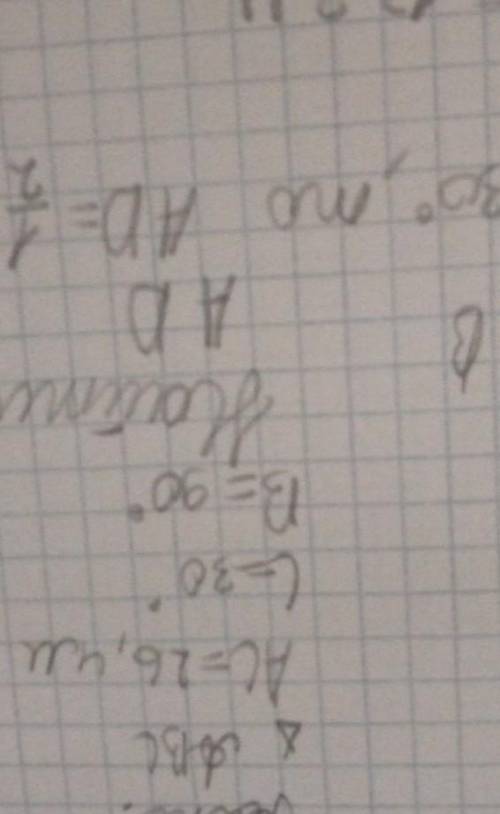 Δ ABC
AC=26,4м
C=30°
B=90°
Найти
AD
30°, то AD=1/2